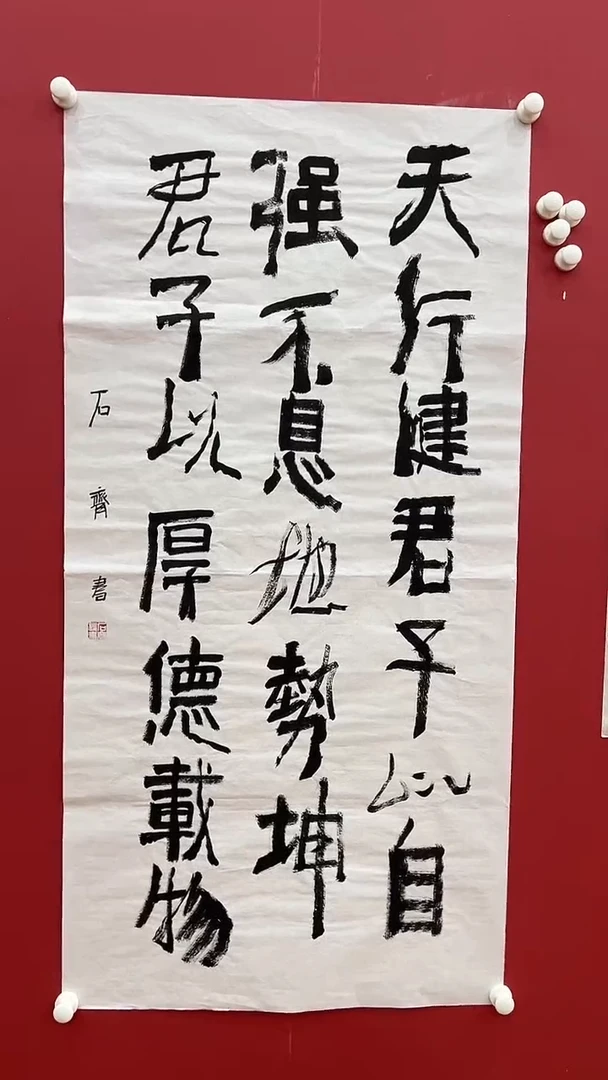 天行健君子以自
强不息地勢坤
君子以厚德載物
石齊書